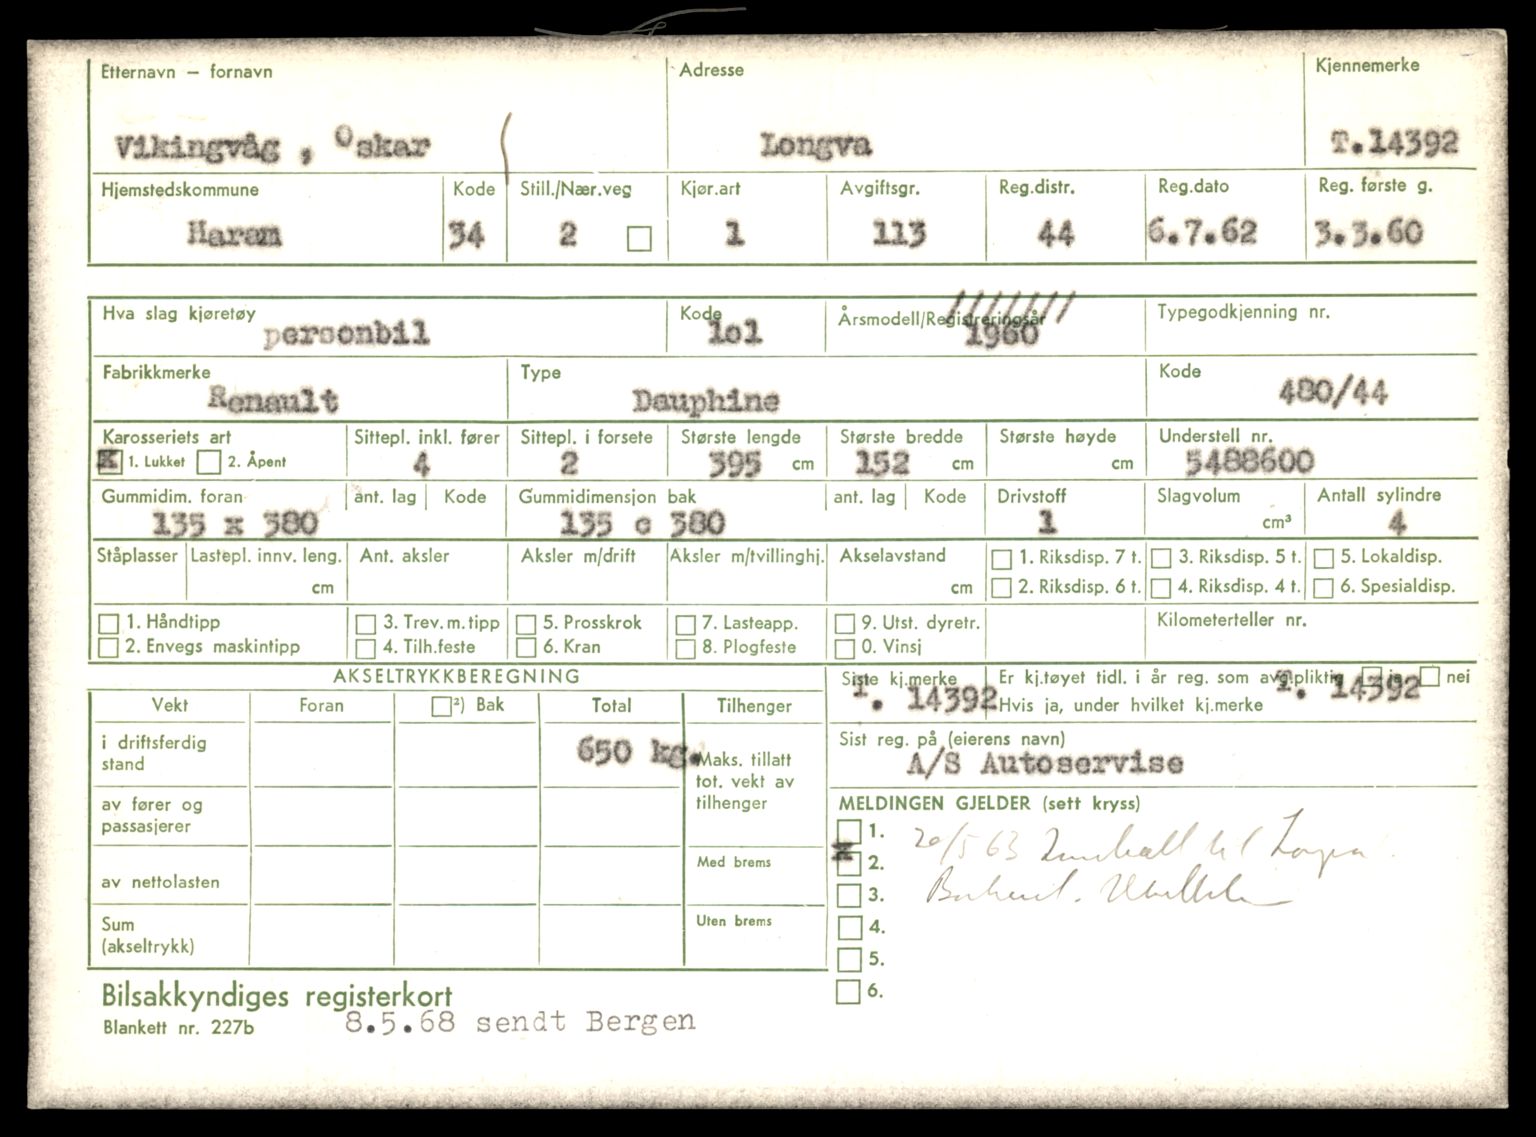 Etternavn – fornavn Adresse Kjennemerke
Vikingvåg , Oskar Longva T.14392
Hjemstedskommune Kode Still./Nær.veg Kjør.art Avgiftsgr. Reg.distr. Reg.dato Reg. første g.
Haram 34 2 1 113 44 6.7.62 3.3.60
Hva slag kjøretøy Kode Årsmodell/Registreringsår Typegodkjenning nr.
personbil 1o1 1960
Fabrikkmerke Type Kode
Renault Dauphine 480/44
Karosseriets art Sittepl. inkl. fører Sittepl. i forsete Største lengde Største bredde Største høyde Understell nr.
x 1. Lukket 2. Åpent 4 2 395 cm 152 cm cm 5488600
Gummidim. foran ant. lag Kode Gummidimensjon bak ant. lag Kode Drivstoff Slagvolum Antall sylindre
135 x 380 135 c 380 1 cm³ 4
Ståplasser Lastepl. innv. leng. Ant. aksler Aksler m/drift Aksler m/tvillinghj. Akselavstand 1. Riksdisp. 7 t. 3. Riksdisp. 5 t. 5. Lokaldisp.
cm cm 2. Riksdisp. 6 t. 4. Riksdisp. 4 t. 6. Spesialdisp.
1. Håndtipp 3. Trev.m.tipp 5. Prosskrok 7. Lasteapp. 9. Utst. dyretr. Kilometerteller nr.
2. Envegs maskintipp 4. Tilh.feste 6. Kran 8. Plogfeste 0. Vinsj
AKSELTRYKKBEREGNING Siste kj.merke Er kj.tøyet tidl. i år reg. som avg.pliktig ja nei
T. 14392 Hvis ja, under hvilket kj.merke T. 14392
Vekt Foran ²) Bak Total Tilhenger
Sist reg. på (eierens navn)
A/S Autoservise
i driftsferdig stand 650 kg. Maks. tillatt tot. vekt av tilhenger
MELDINGEN GJELDER (sett kryss)
av fører og passasjerer
1. 20/5 63
x 2.
av nettolasten Med brems
3.
Sum (akseltrykk) Uten brems
4.
5.
6.
Bilsakkyndiges registerkort
Blankett nr. 227b 8.5.68 sendt Bergen